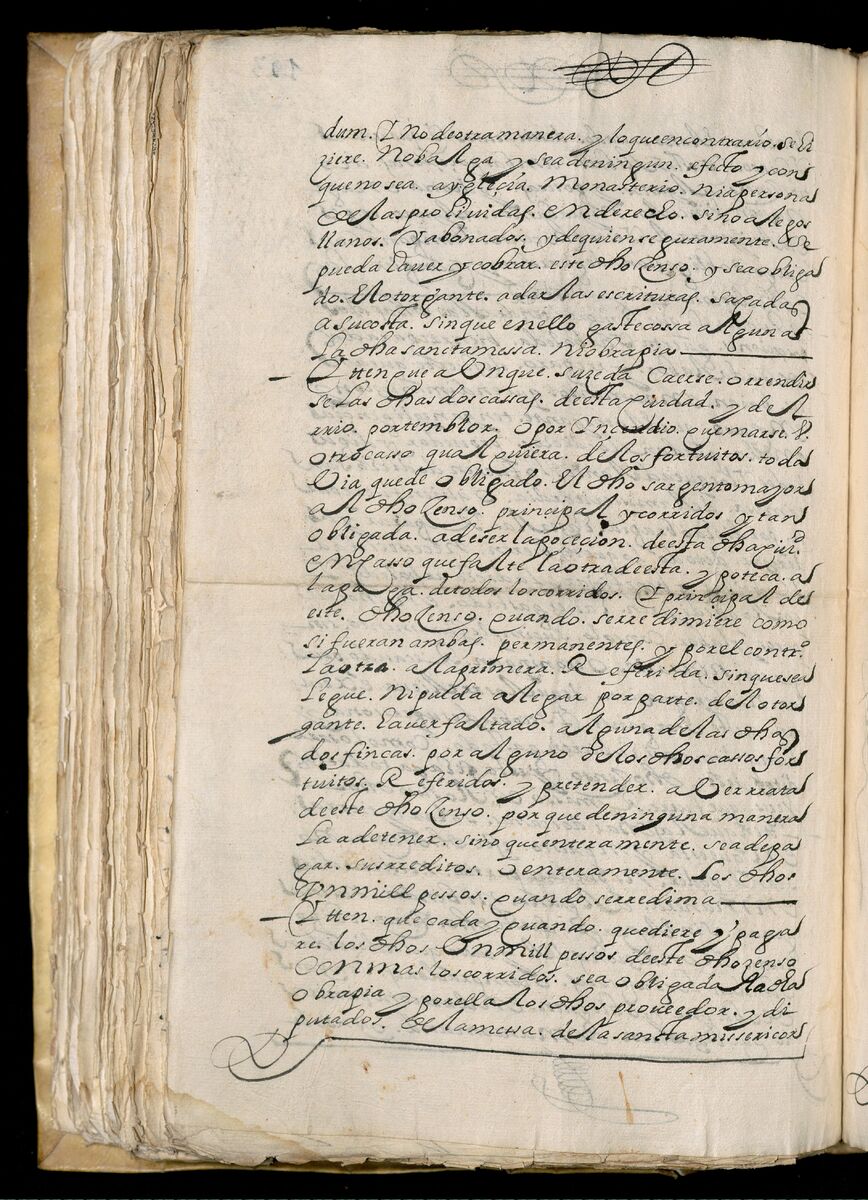 dum. Y no de otra manera. y lo que en contrario. se hi
ziere. No balga y sea de ningun. efecto y con
que no sea. a yglecia. Monasterio. Ni a persona
de las prohividas. en derecho. sino a legos
llanos. Y abonados. y de quien seguramente. se
pueda haver y cobrar. este dho Zenso. y sea obliga
do. El otorgante. a dar las escrituras. sacadas
a su costa. sin que en ello gaste cossa alguna
La dha sancta messa. Ni obrapia
Ytten que a Unque. suzeda Caerse. o rrendir
se Las dhas dos cassas. de esta ziudad. y de A
rrio. por temblor. o por Yncendio. quemarse. V.
otro casso qualquiera. de los fortuitos. toda
Via quede obligado. El dho sargento mayor
al dho Zenso. principal y corridos y tan
obligada. a de ser la pocecion. de esta dha ziud.
en casso que falte la otra de esta. ypoteca. a
la paga. de todos los corridos. Y principal de
este. dho Zenso. quando. se rredimiere como
si fueran ambas. permanentes. y por el contro.
La otra. a la primera. Referida. sin que sea
legue. Ni pueda alegar por parte. del otor
gante. haver faltado. alguna de las dhas
dos fincas. por alguno de los dhos cassos for
tuitos. Referidos. y pretender. a Ver rrata
de este dho Zenso. por que de ninguna manera
La a de tener. sino que enteramente. sea de pa
gar. sus rreditos. Y enteramente. Los dhos
Un mill pessos. quando se rredima
Ytten. que cada y quando. que diere y paga
re. los dhos Un mill pessos de este dho zenso
Con mas los corridos. sea obligada la dha
obrapia y por ella los dhos proveedor. y di
putados. de la messa. de la sancta missericor